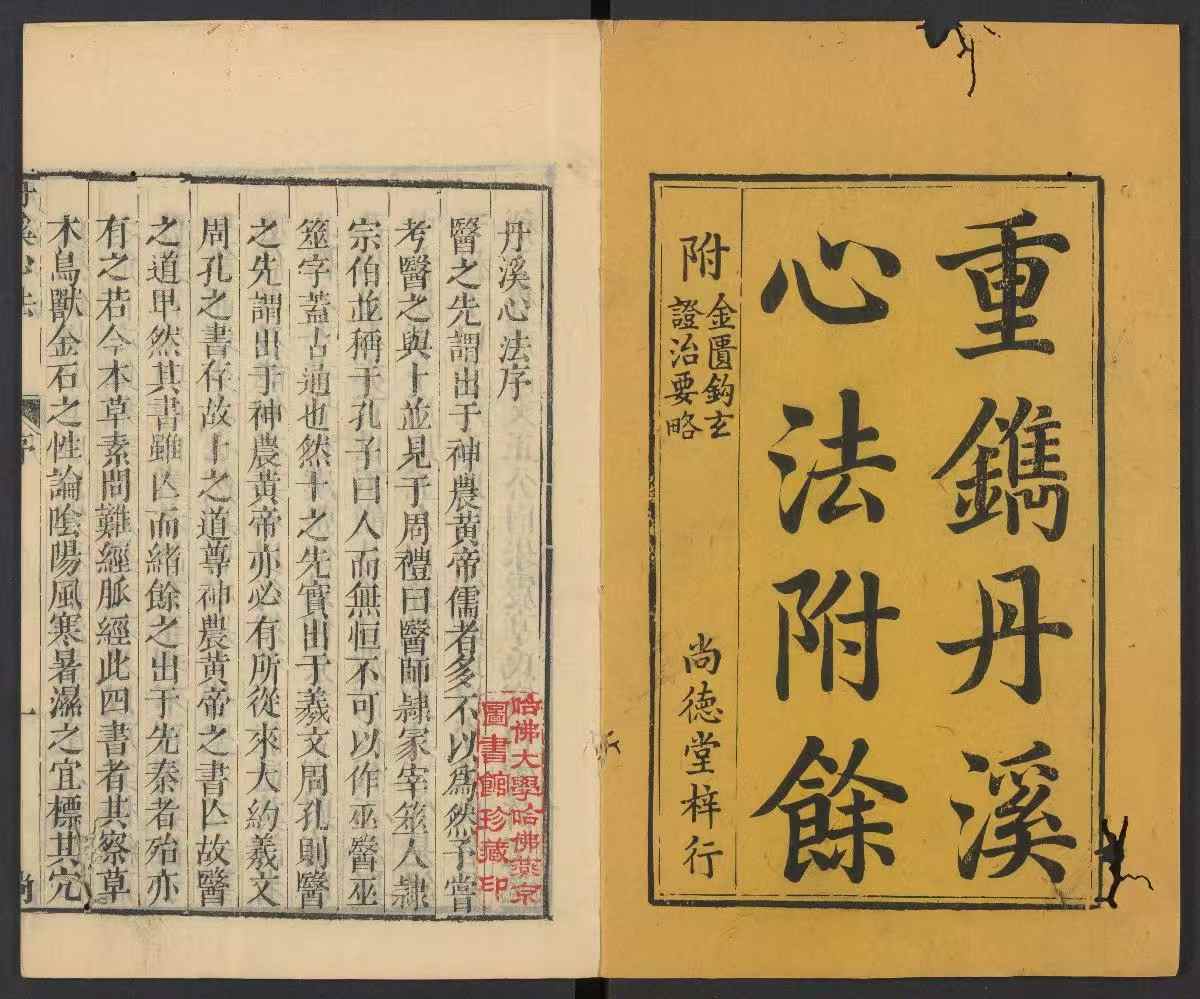 重鐫丹溪
心法附餘
附
金匱鈎玄
證治要略
尚德堂梓行
丹溪心法序
醫之先謂出于神農黃帝儒者多不以爲然予嘗
考醫之與卜並見于周禮曰醫師隸冢宰筮人隸
宗伯並稱于孔子曰人而無恒不可以作巫醫巫
筮字蓋古通也然卜之先實出于羲文周孔則醫
之先謂出于神農黃帝亦必有所從來大約羲文
周孔之書存故卜之道尊神農黃帝之書亾故醫
之道卑然其書雖亾而緒餘之出于先秦者殆亦
有之若今本草素問難經脈經此四書者其察草
木鳥獸金石之性論陰陽風寒暑濕之宜標其穴
哈佛大學哈佛燕京
圖書館珍藏印
序
一